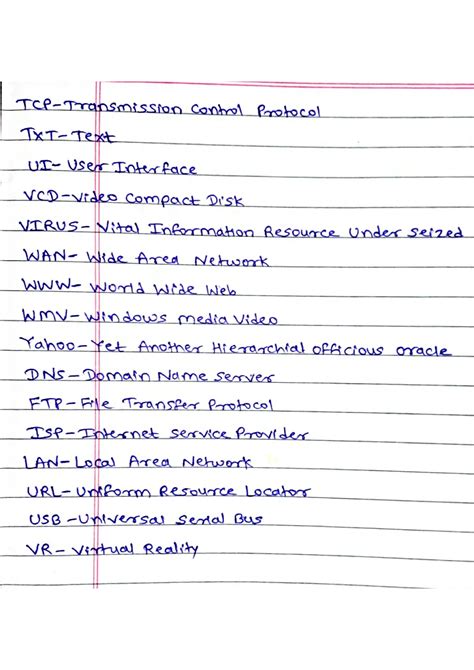 TCP-Transmission Control Protocol
TXT-Text
UI-User Interface
VCD-Video Compact Disk
VIRUS-Vital Information Resource Under Seized
WAN-Wide Area Network
WWW-World Wide Web
WMV-Windows media Video
Yahoo-Yet Another Hierarchial officious oracle
DNS-Domain Name Server
FTP-File Transfer Protocol
ISP-Internet Service Provider
LAN-Local Area Network
URL-Uniform Resource Locator
USB-Universal Serial Bus
VR-Virtual Reality